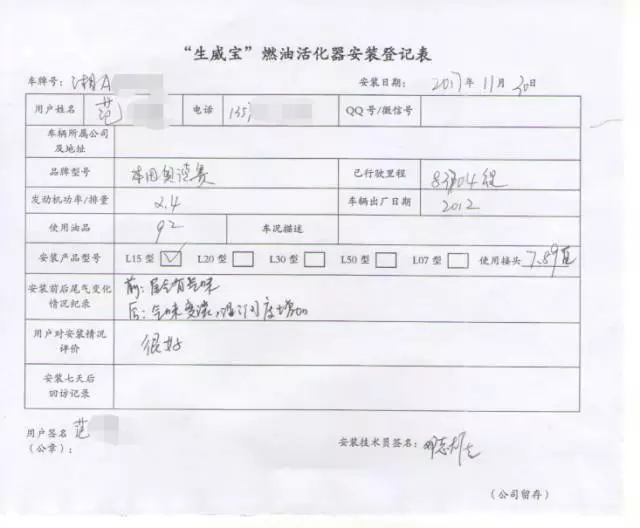 “生威宝”燃油活化器安装登记表
车牌号：湘A 安装日期：2017年11月30日
用户姓名 范 电话 135 QQ号/微信号
车辆所属公司及地址
品牌型号 本田奥德赛 已行驶里程
发动机功率/排量 2.4 车辆出厂日期 2012
使用油品 92 车况描述
安装产品型号 L15型 ✓ L20型 L30型 L50型 L07型 使用接头 7.89直
安装前后尾气变化
情况纪录
前：尾气有气味
后：气味变淡，湿润度增加
用户对安装情况
评价
很好
安装七天后
回访记录
用户签名 范
（公章）：
安装技术员签名：
（公司留存）